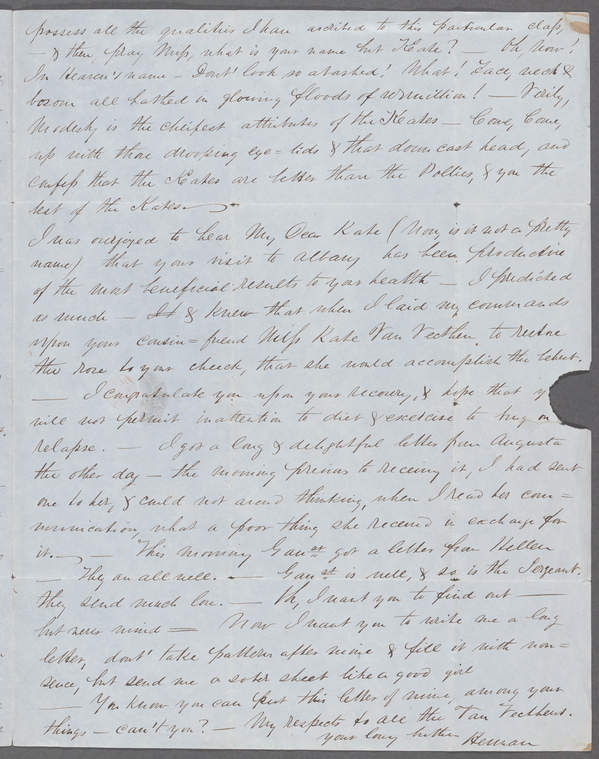 possess all the qualities I have ascribed to this particular class,
— & then pray Miss, what is your name but Kate? — Oh, Now!
In Heaven's name — Dont' look so abashed! What! Face, neck &
bosom all bathed in flowing floods of vermillion! — Verily,
Modesty is the chiefest attributes of the Kates — Come, Come,
up with those drooping eye=lids & that down cast head, and
confess that the Kates are better than the Pollies, & you the
best of the Kates.—
I was overjoyed to hear My Dear Kate (Now, is it not a pretty
name) that your visit to Albany has been productive
of the most beneficial results to your health — I predicted
as much — & knew that when I laid my commands
upon your cousin=friend Miss Kate Van Vecthen to restore
the rose to your cheek, that she would accomplish the behest.
— I congratulate you upon your recovery, & hope that
will not permit inattention to diet & exercise to bring on
relapse. — I got a long & delightful letter from Augusta
the other day — the morning previous to receiving it, I had sent
one to her, & could not avoid thinking, when I read her com=
munication, what a poor thing she received in exchange for
it. — — This morning Gan st got a letter from Hellen
— They are all well. — Gan st is well, & so is the Sergeant.
they send much love. — Oh, I want you to find out —
but never mind = Now I want you to write me a long
letter, dont' take pattern after mine & fill it with non=
sence, but send me a sober sheet like a good girl
— You know you can put this letter of mine, among your
things — can't you? — My respects to all the Van Vecthens.
your loving brother Herman